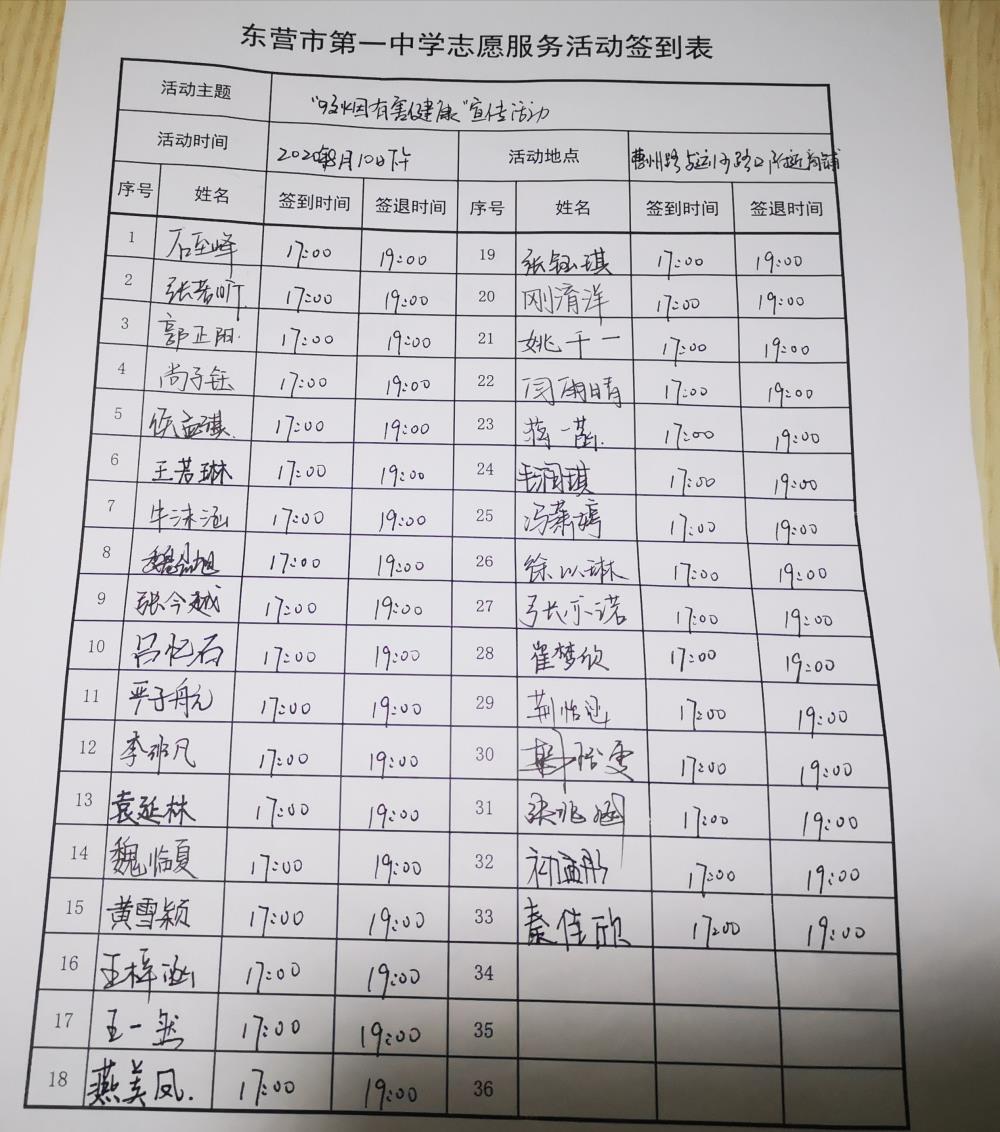 东营市第一中学志愿服务活动签到表
活动主题 "吸烟有害健康"宣传活动
活动时间 2020年8月10日下午 活动地点 曹州路与运河路口附近商铺
序号 姓名 签到时间 签退时间 序号 姓名 签到时间 签退时间
1 石至峰 17:00 19:00 19 张钰琪 17:00 19:00
2 张若昕 17:00 19:00 20 刚淯洋 17:00 19:00
3 郭正阳 17:00 19:00 21 姚千一 17:00 19:00
4 尚子钰 17:00 19:00 22 闫雨晴 17:00 19:00
5 侯孟琪 17:00 19:00 23 蒋一菡 17:00 19:00
6 王若琳 17:00 19:00 24 毛润琪 17:00 19:00
7 牛沫涵 17:00 19:00 25 冯萧 17:00 19:00
8 魏 旭 17:00 19:00 26 徐以琳 17:00 19:00
9 张今越 17:00 19:00 27 张亦诺 17:00 19:00
10 吕忆石 17:00 19:00 28 崔梦欣 17:00 19:00
11 严子航 17:00 19:00 29 荆怡 17:00 19:00
12 李 凡 17:00 19:00 30 雯 17:00 19:00
13 袁延林 17:00 19:00 31 张兆涵 17:00 19:00
14 魏临夏 17:00 19:00 32 初孟彤 17:00 19:00
15 黄雪颖 17:00 19:00 33 秦佳欣 17:00 19:00
16 王梓涵 17:00 19:00 34
17 王一然 17:00 19:00 35
18 燕美凤 17:00 19:00 36